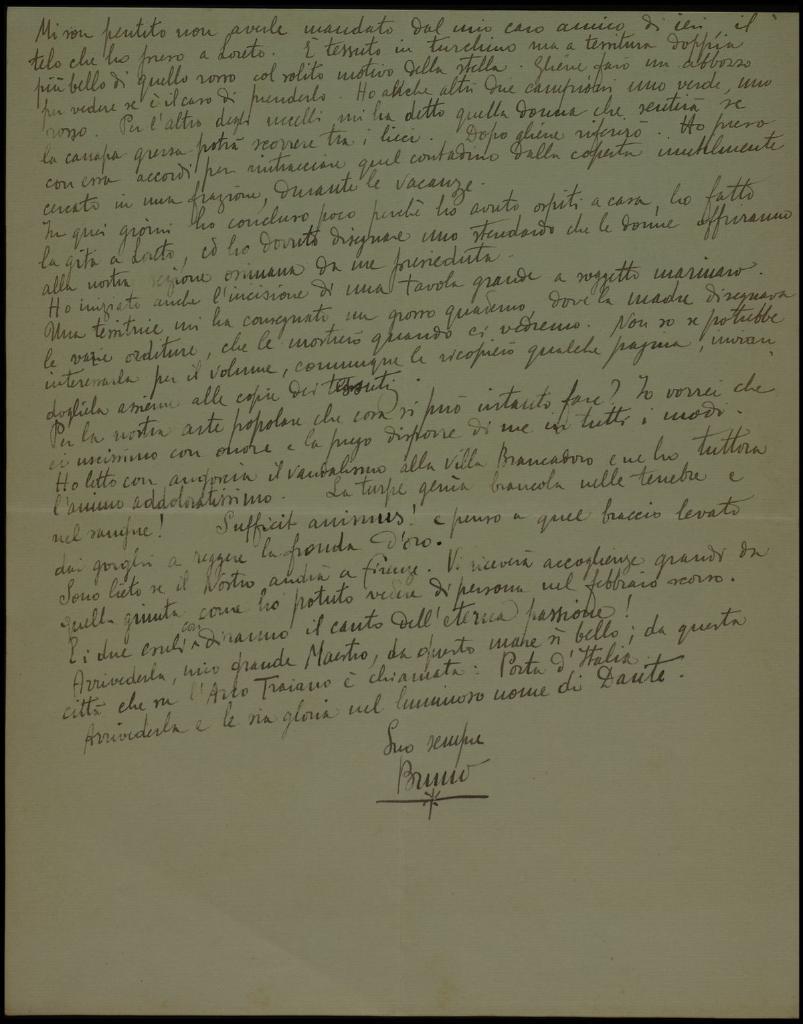 Mi son pentito non averle mandato dal mio caro amico di ieri, il
telo che ho preso a Loreto. È tessuto in turchino ma a tessitura doppia
più bello di quello rosso col solito motivo della stella. Gliene farò un abbozzo
per vedere se è il caso di prenderlo. Ho anche altri due campioni uno verde, uno
rosso. Per l'altro degli uccelli mi ha detto quella donna che sentirà se
la canapa grezza potrà scorrere tra i licci. Dopo gliene riferirò. Ho preso
con essa accordi per rintracciare quel contadino dalla coperta inutilmente
cercato in una frazione, durante le vacanze.
In quei giorni ho concluso poco perchè ho avuto ospiti a casa, ho fatto
la gita a Loreto, ed ho dovuto disegnare uno stendardo che le donne offriranno
alla nostra sezione osimana da me presieduta.
Ho iniziato anche l'incisione di una tavola grande a soggetto marinaro.
Una tessitrice mi ha consegnato un grosso quaderno, dove la madre disegnava
le varie orditure, che le mostrerò quando ci vedremo. Non so se potrebbe
interessarla per il volume, comunque le ricopierò qualche pagina, invian
dogliela assieme alle copie dei tessuti.
Per la nostra arte popolare che cosa si può intanto fare? Io vorrei che
ci uscissimo con onore e la prego disporre di me in tutti i modi.
Ho letto con angoscia il vandalismo alla Villa Brancadoro e ne ho tuttora
l'animo addoloratissimo. La turpe genìa brancola nelle tenebre e
nel sangue! Sufficit animus! e penso a quel braccio levato
dai gorghi a reggere la fronda d'oro.
Sono lieto se il Nostro andrà a Firenze. Vi riceverà accoglienze grandi da
quella giunta come ho potuto vedere di persona nel febbraio scorso.
E i due esuli diranno il canto dell'eterna passione!
Arrivederla, mio grande Maestro, da questo mare sì bello; da questa
città che su l'Arco Traiano è chiamata: Porta d'Italia.
Arrivederla e le sia gloria nel luminoso nome di Dante.
Suo sempre
Bruno